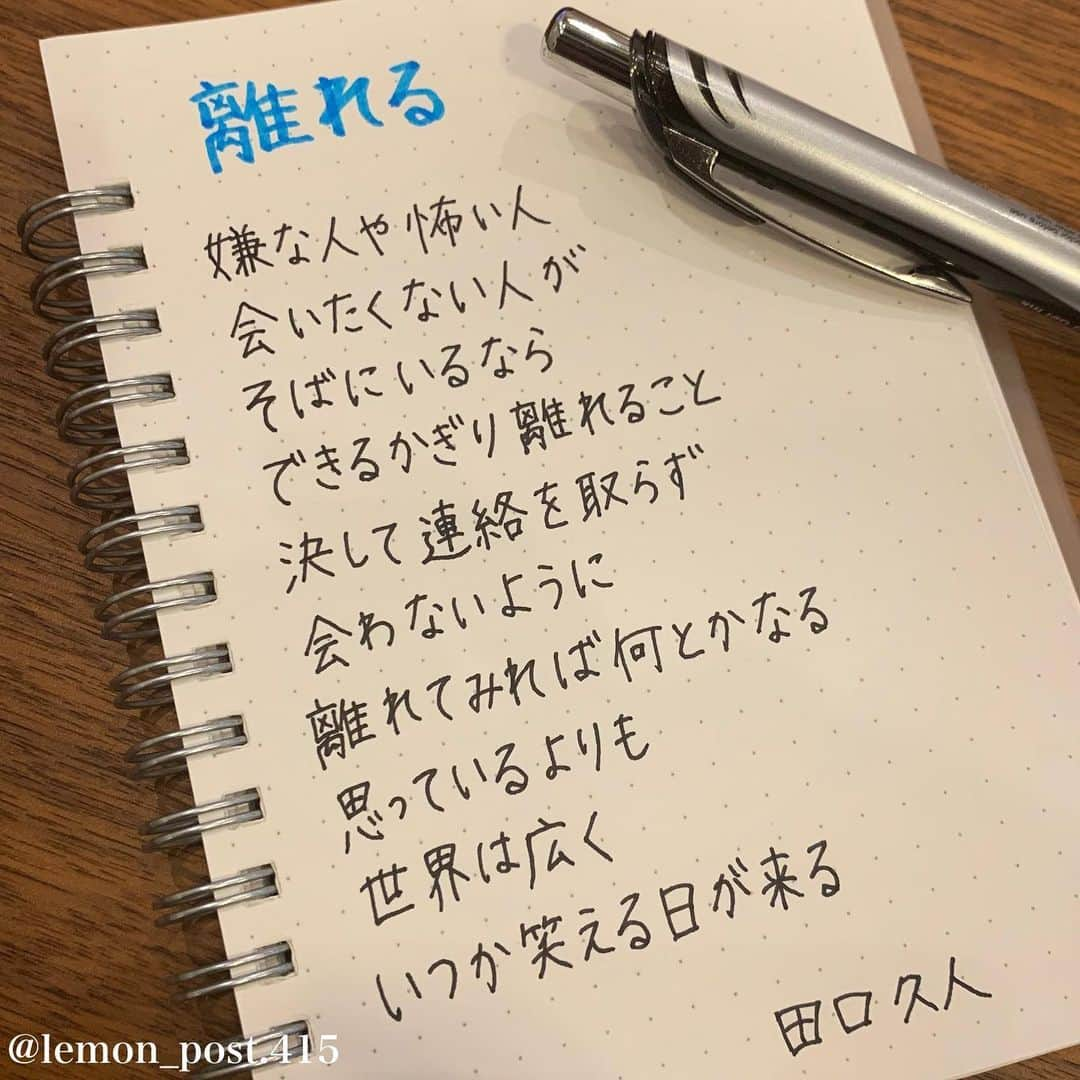 離れる
嫌な人や怖い人
会いたくない人が
そばにいるなら
できるかぎり離れること
決して連絡を取らず
会わないように
離れてみれば何とかなる
思っているよりも
世界は広く
いつか笑える日が来る
田口久人
@lemon_post.415